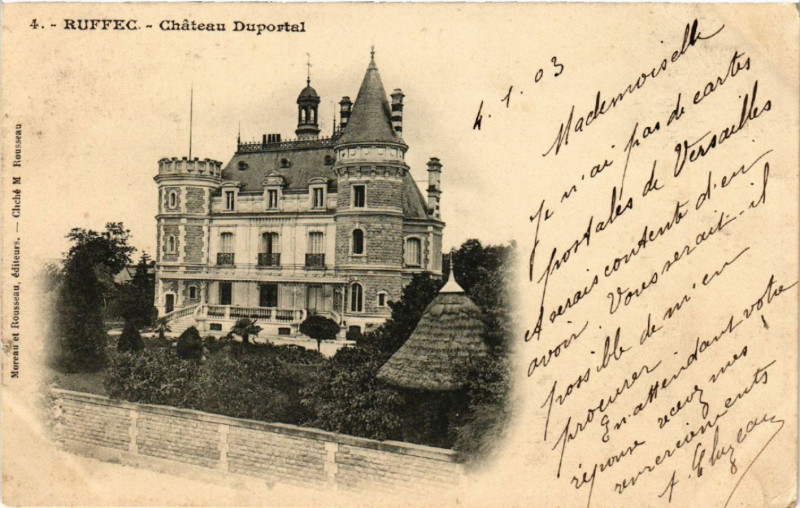 4. - RUFFEC. - Château Duportal
Moreau et Rousseau, éditeurs. — Cliché M Rousseau
4. 1. 03
Mademoiselle
Je n'ai pas de cartes
postales de Versailles
et serais contente d'en
avoir. Vous serait-il
possible de m'en
procurer
En attendant votre
réponse recevez mes
remerciements
A.